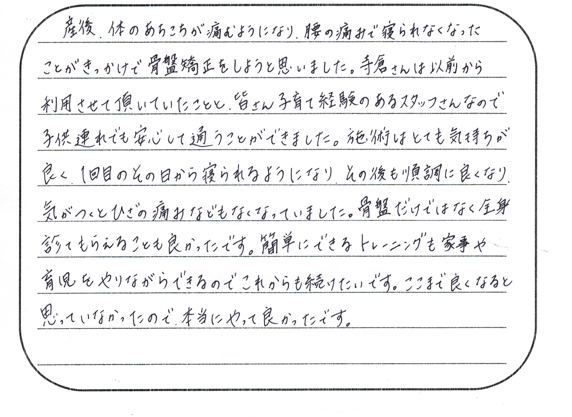 産後、体のあちこちが痛むようになり、腰の痛みで寝られなくなった
ことがきっかけで骨盤矯正をしようと思いました。寺倉さんは以前から
利用させて頂いていたことと、皆さん子育て経験のあるスタッフさんなので
子供連れでも安心して通うことができました。施術はとても気持ちが
良く、1回目のその日から寝られるようになり、その後も順調に良くなり、
気がつくとひざの痛みなどもなくなっていました。骨盤だけではなく全身
診てもらえることも良かったです。簡単にできるトレーニングも家事や
育児をやりながらできるのでこれからも続けたいです。ここまで良くなると
思っていなかったので、本当にやって良かったです。